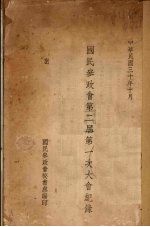 中華民國三十年十月
國民參政會第二屆第一次大會紀錄
國民參政會秘書處編印